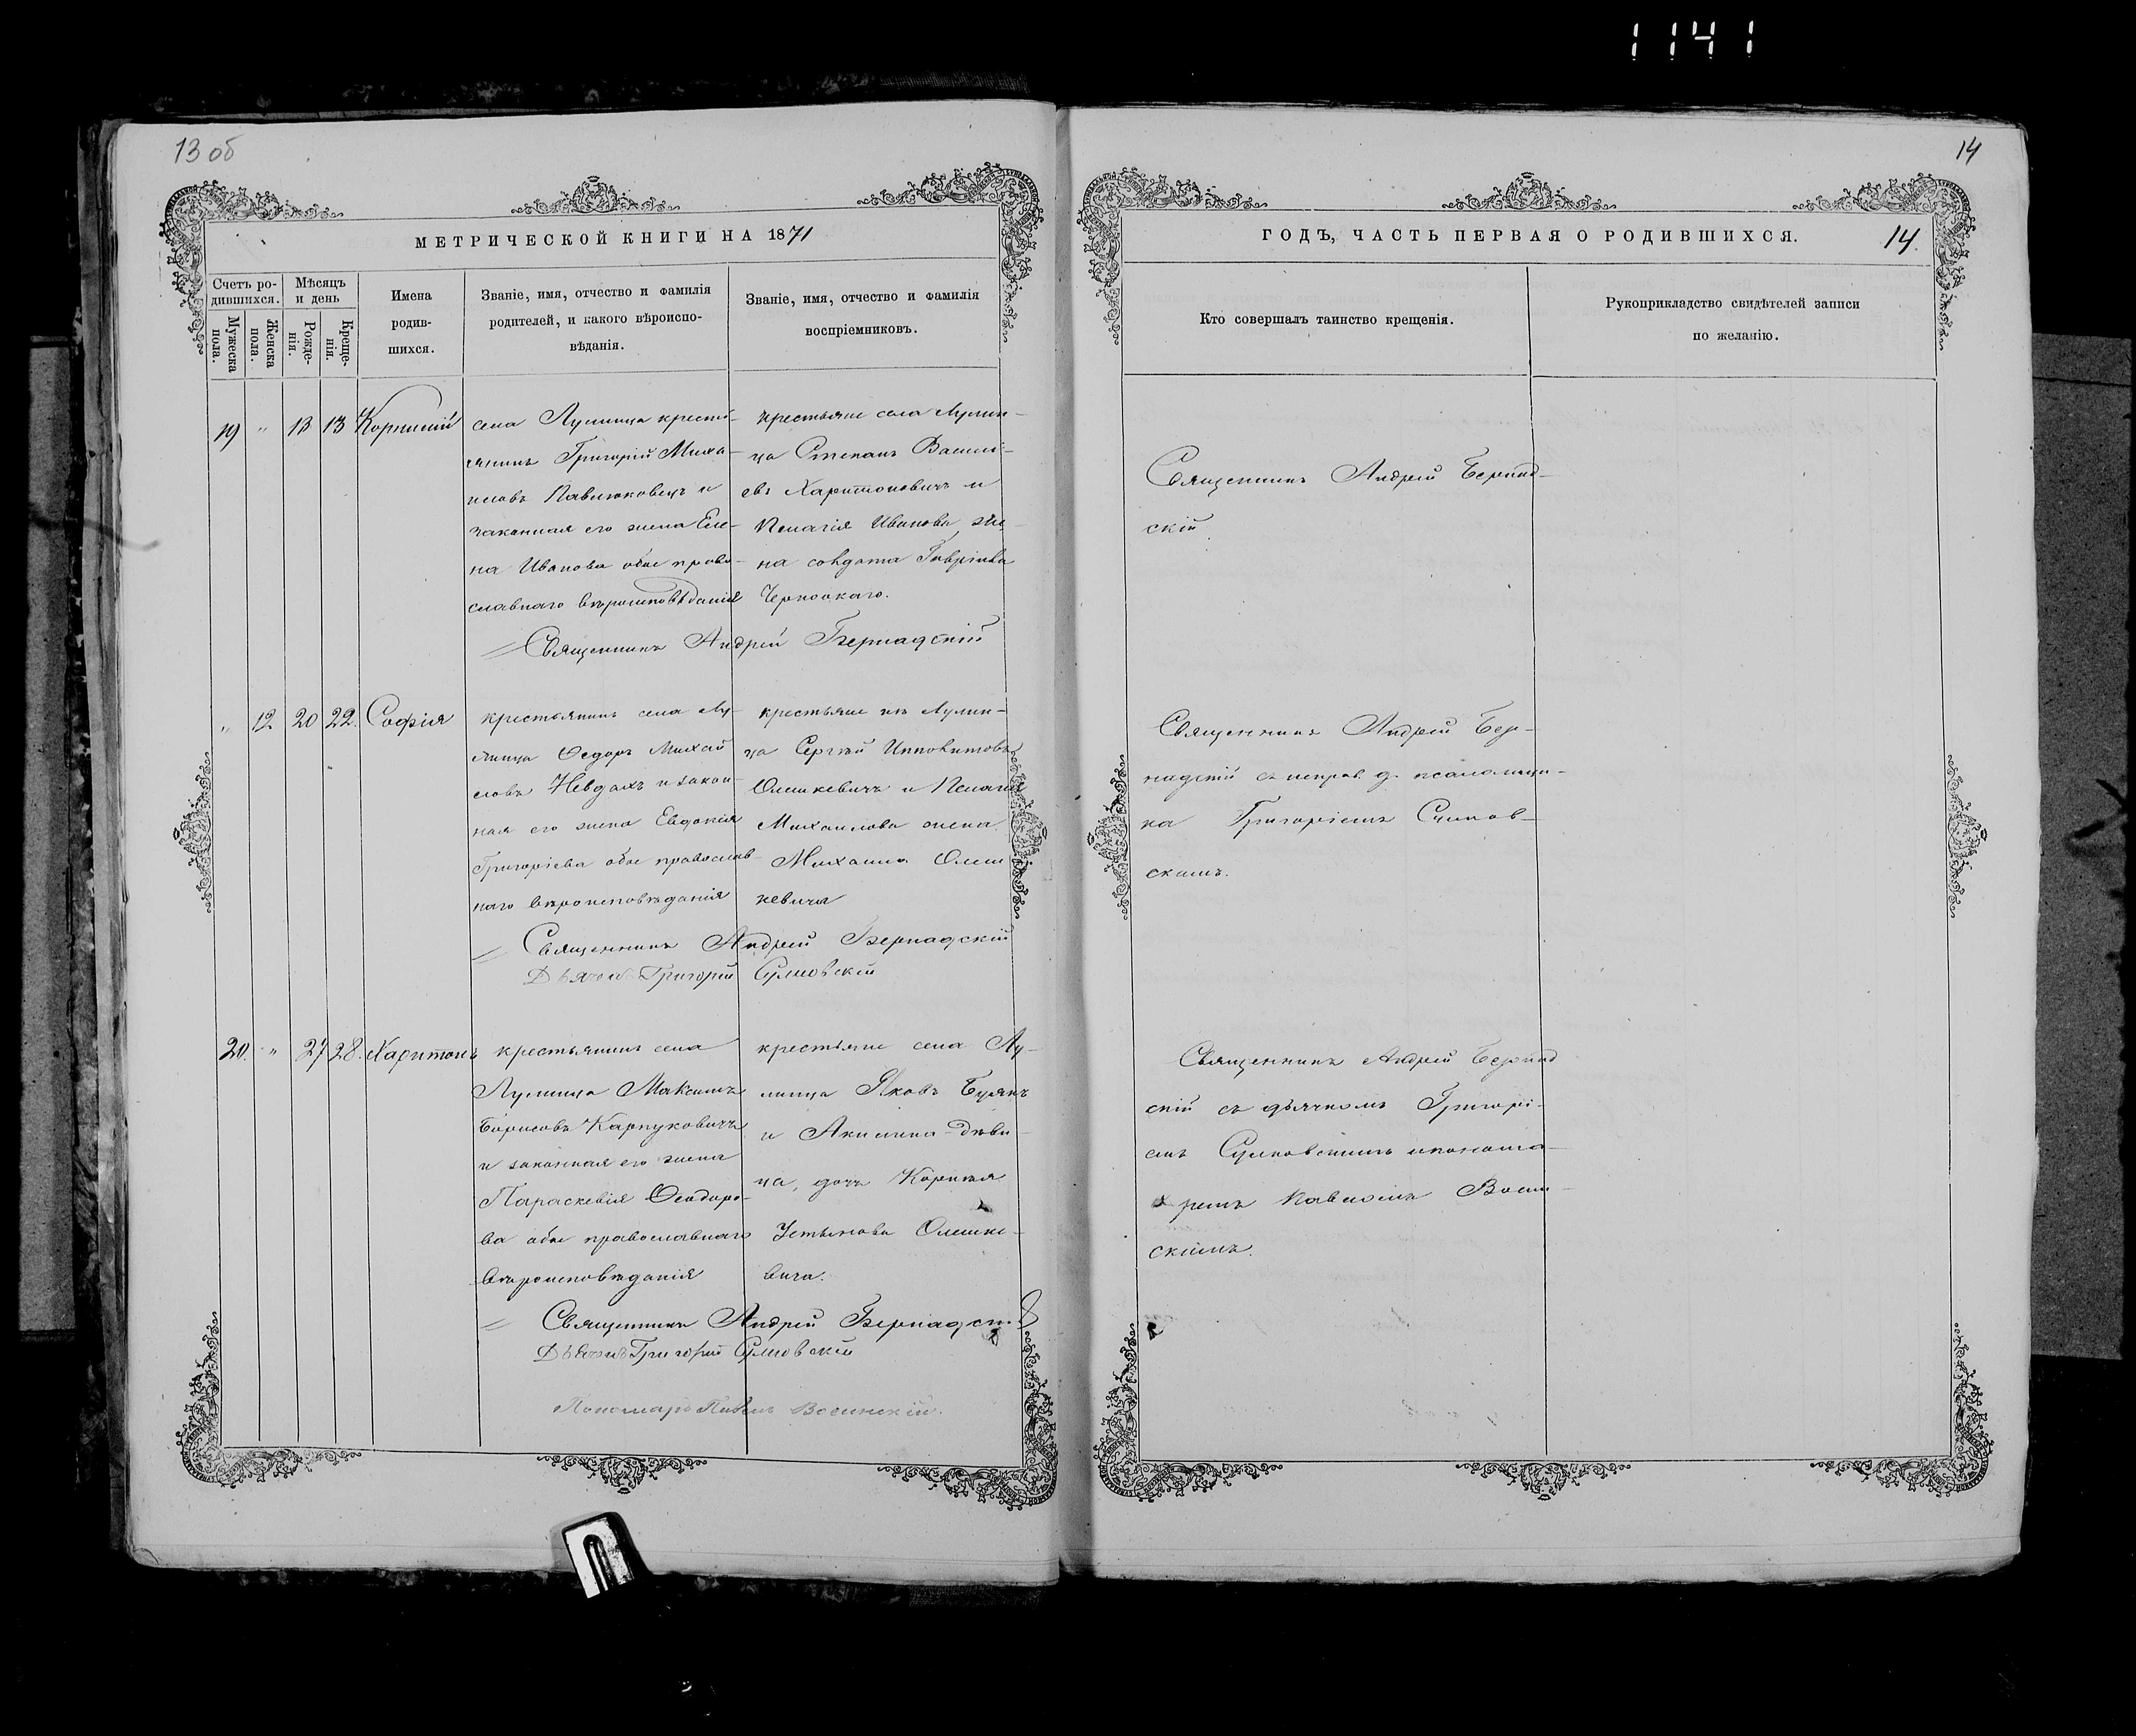 1141
13 об
14
МЕТРИЧЕСКОЙ КНИГИ НА 1871
ГОДЪ, ЧАСТЬ ПЕРВАЯ О РОДИВШИХСЯ.
14.
Счетъ ро-
дившихся.
Мужеска пола.
Женска пола.
Мѣсяцъ
и день
Рожде-
нія.
Креще-
нія.
Имена
родив-
шихся.
Званіе, имя, отчество и фамилія
родителей, и какого вѣроиспо-
вѣданія.
Званіе, имя, отчество и фамилія
воспріемниковъ.
Кто совершалъ таинство крещенія.
Рукоприкладство свидѣтелей записи
по желанію.
19 " 13 13 Корнилій
села Лулинца кресть-
янинъ Григорій Миха-
иловъ Павлюковецъ и
законная его жена Еле-
на Иванова обое право-
славнаго вѣроисповѣданія
крестьяне села Лулин-
ца Степанъ Василі-
евъ Харитоновичъ и
Пелагія Иванова же-
на солдата Гавріила
Черноокаго.
Священникъ Андрей Бернадскій
Священникъ Андрей Бернад-
скій
" 12 20 22. Софія
крестьянинъ села Лу-
линца Ѳедоръ Михай
ловъ Невдахъ и закон-
ная его жена Евдокія
Григоріева обое православ-
наго вѣроисповѣданія
крестьяне Лулин-
ца Сергѣй Ипполитовъ
Олешкевичъ и Пелагія
Михаилова жена
Михаила Олеш
кевича
Священникъ Андрей Бернадскій
Дьячокъ Григорій
Священникъ Андрей Бер-
надскій съ исправ. д. псаломщи-
ка Григоріемъ
скимъ.
20. " 27 28. Харитонъ
крестьянинъ села
Лулинца Максимъ
Борисовъ Карпуковичъ
и законная его жена
Параскевія Ѳеодоро-
ва обое православнаго
вѣроисповѣданія
крестьяне села Лу-
линца Яковъ Буякъ
и Акилина дѣви-
ца, дочь Корнилія
Устинова Олешке-
вича.
Священникъ Андрей Бернадскій
Дьячокъ Григорій
Пономарь Павелъ
Священникъ Андрей Бернад
скій съ дьячкомъ Григорі-
емъ и понома-
ремъ Павломъ
скимъ.